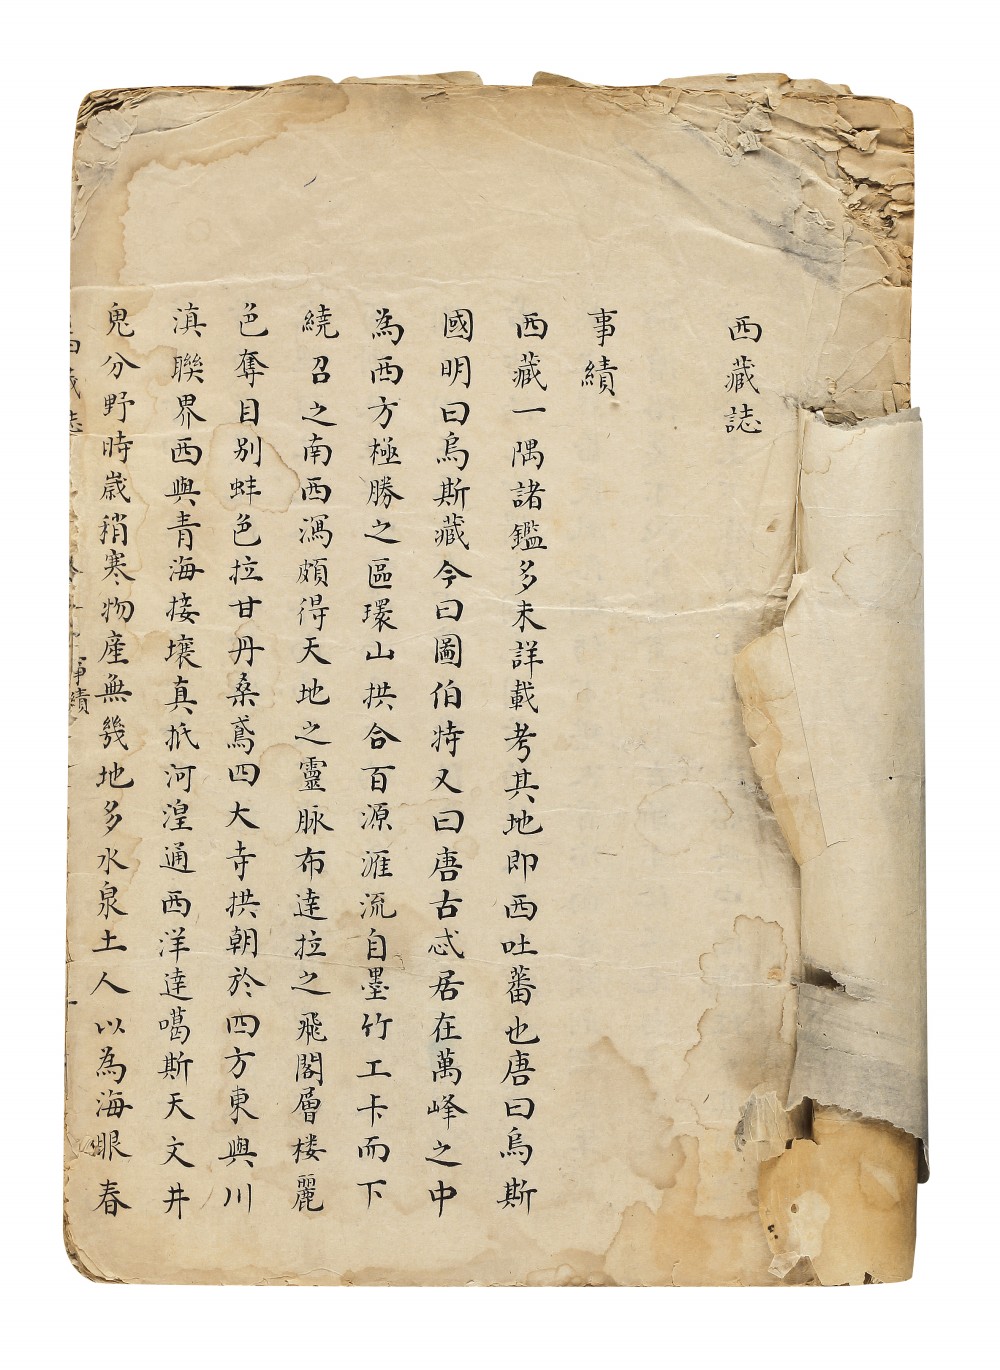 西藏誌
事績
西藏一隅諸鑑多未詳載考其地即西吐蕃也唐曰烏斯
國明曰烏斯藏今曰圖伯特又曰唐古忒居在萬峰之中
為西方極勝之區環山拱合百源滙流自墨竹工卡而下
繞召之南西瀉頗得天地之靈脉布達拉之飛閣層楼麗
色奪目別蚌色拉甘丹桑鳶四大寺拱朝於四方東與川
滇聯界西與青海接壤真抵河湟通西洋達噶斯天文井
鬼分野時歲稍寒物産無幾地多水泉土人以為海眼春
西藏誌
事績